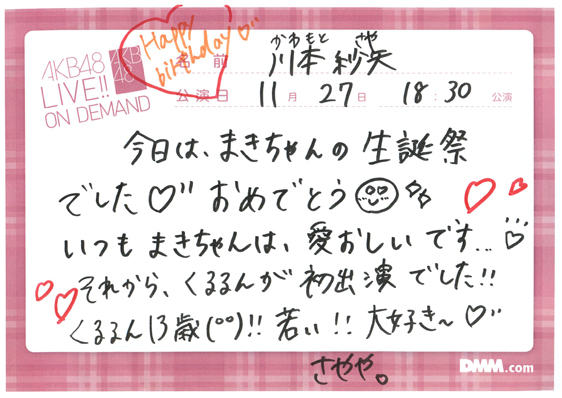 Happy
birthday
AKB48
LIVE!!
ON DEMAND
AKB
48
かわもと さや
名前 川本 紗矢
公演日 11月 27日 18:30 公演
今日は、まきちゃんの生誕祭
でした♡ おめでとう
いつも まきちゃんは、愛おしいです...♡
それから、くるるんが 初出演 でした!!
くるるん13歳(°°)!! 若い!! 大好き〜♡
さやや。
DMM.com